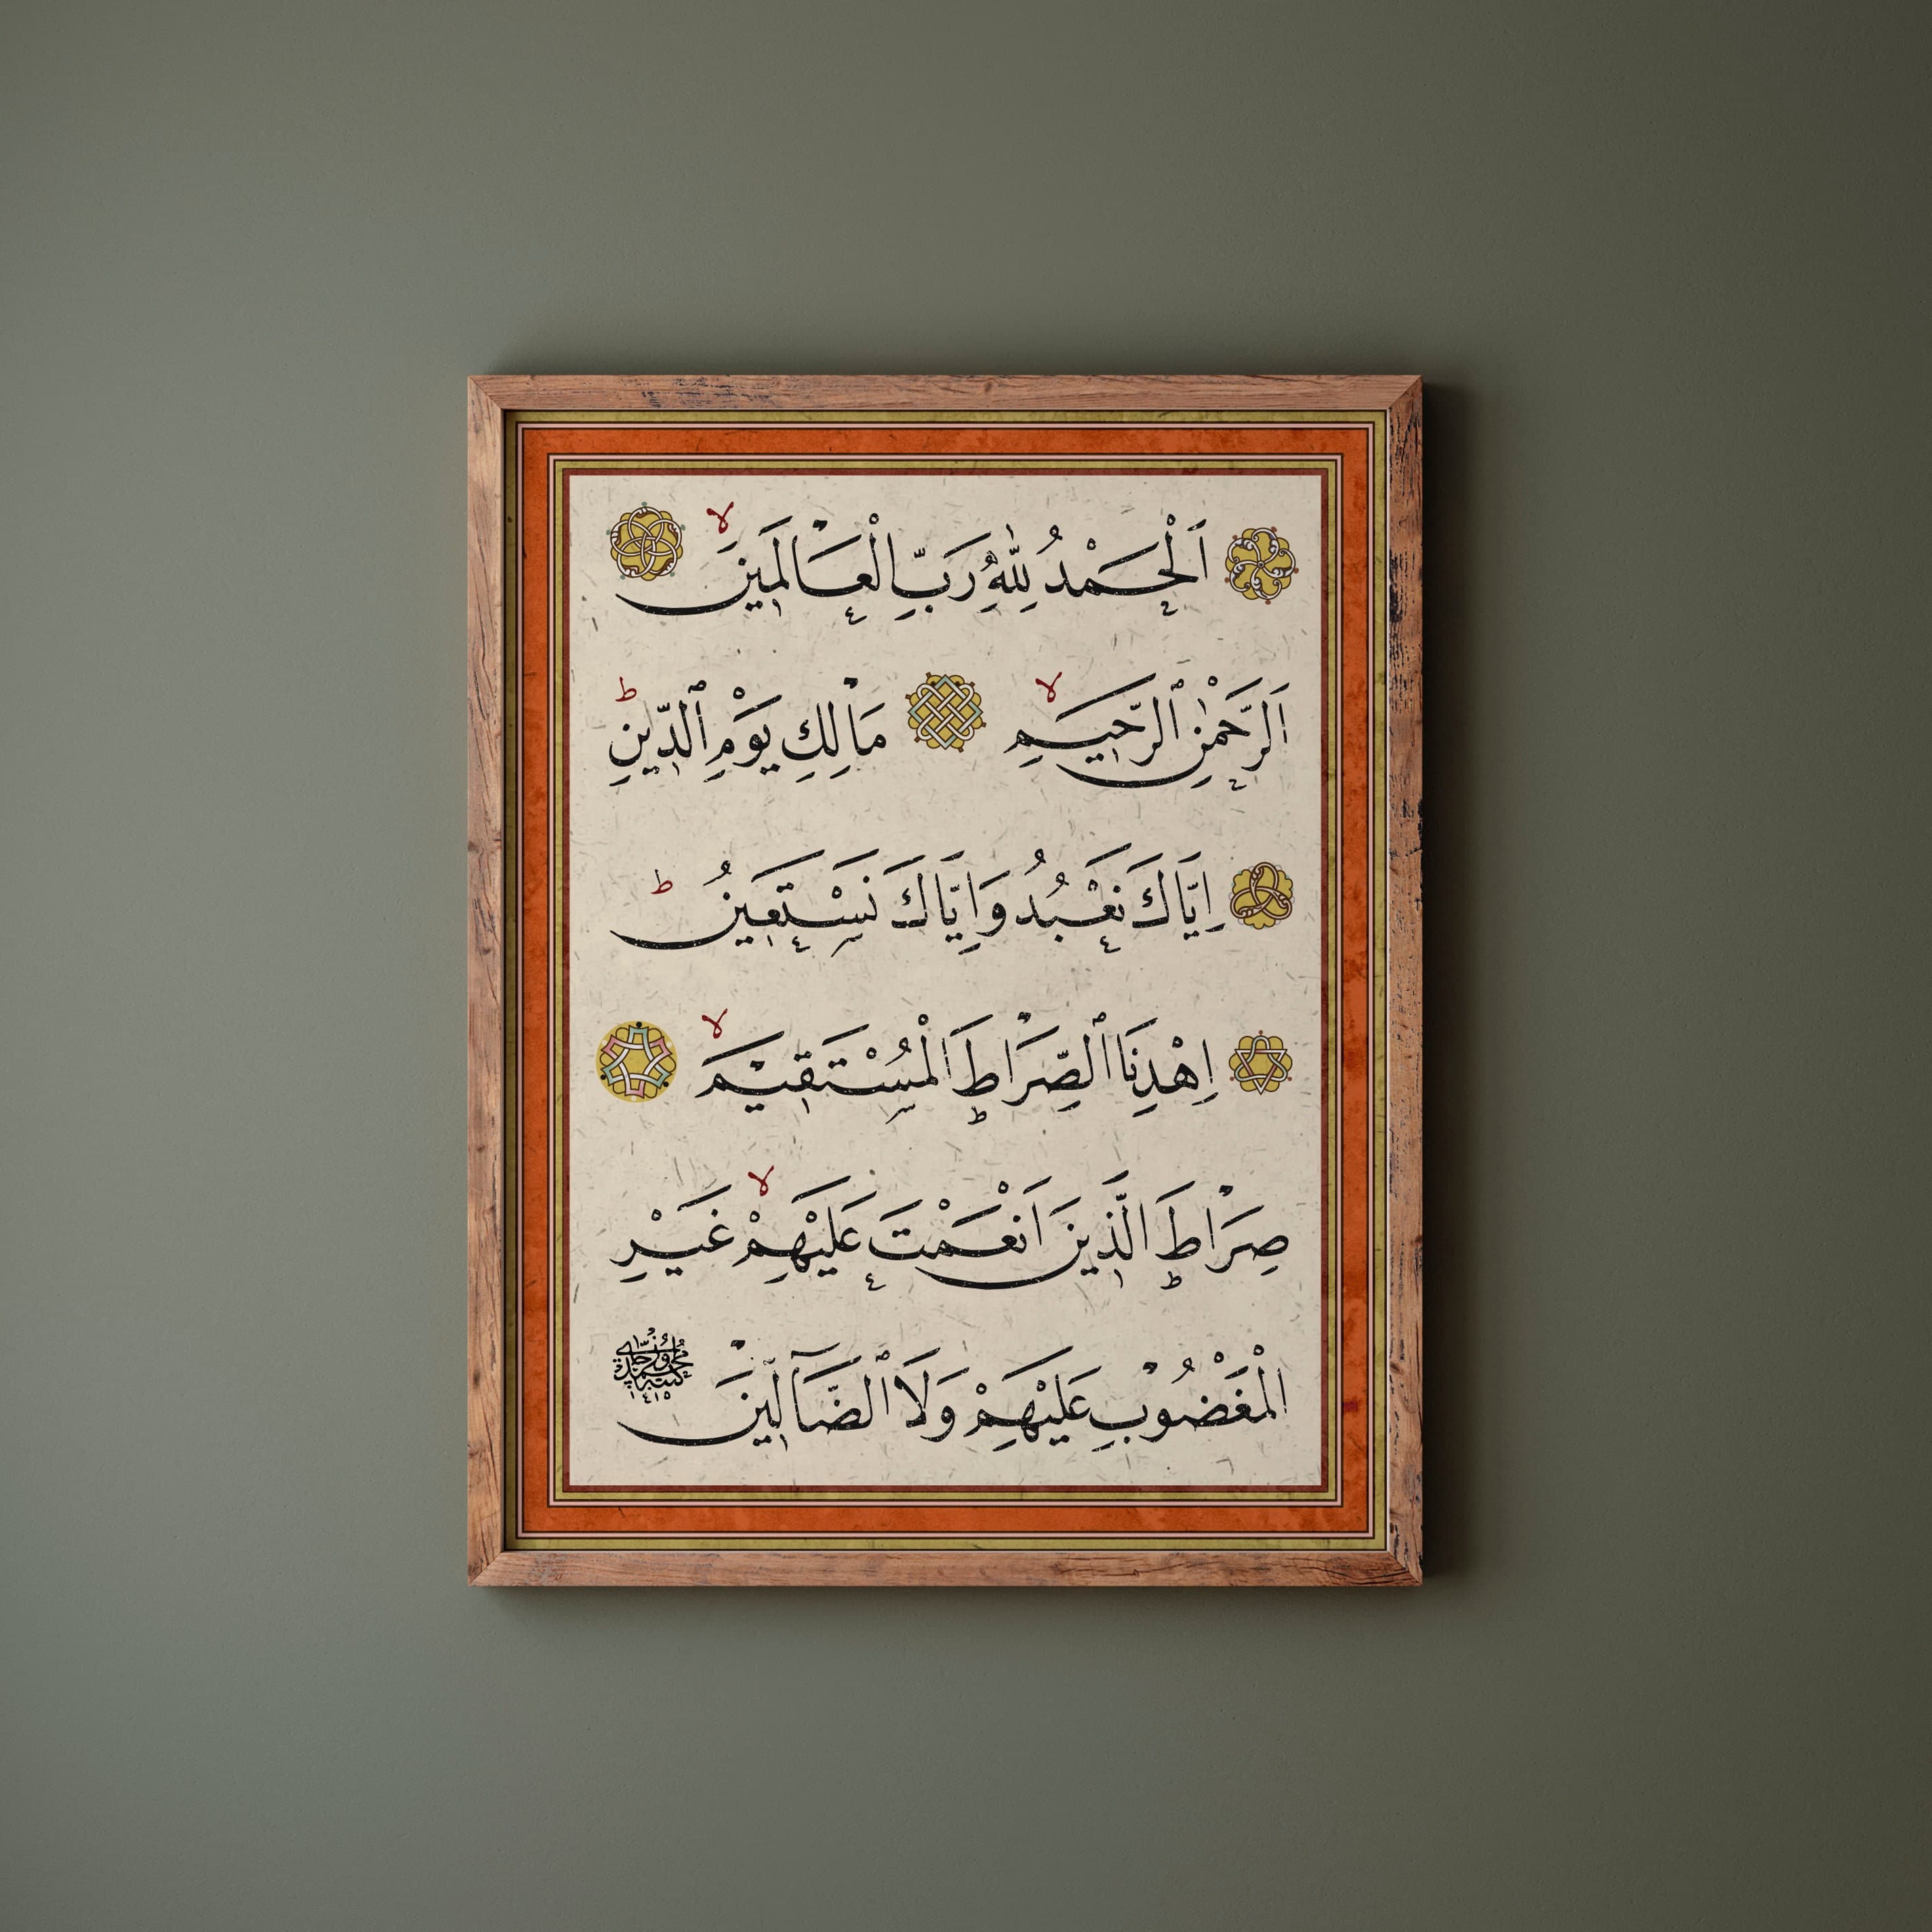 اَلْحَمْدُ لِلّٰهِ رَبِّ الْعَالَمٖينَ ۙلا
اَلرَّحْمٰنِ الرَّحٖيمِ لا مَالِكِ يَوْمِ الدّٖينِ ط
اِيَّاكَ نَعْبُدُ وَاِيَّاكَ نَسْتَعٖينُ ط
اِهْدِنَا الصِّرَاطَ الْمُسْتَقٖيمَ لا
صِرَاطَ الَّذٖينَ اَنْعَمْتَ عَلَيْهِمْ لا غَيْرِ
الْمَغْضُوبِ عَلَيْهِمْ وَلَا الضَّٓالّٖينَ
كتبه محمد اوزچاى
١٤١٥